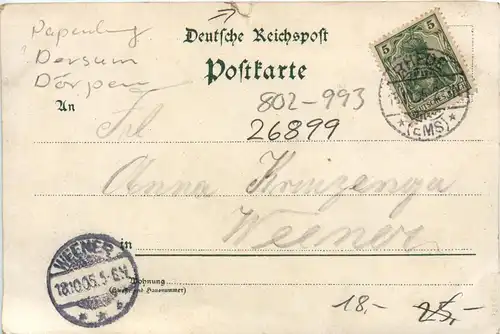 Papenburg
Dersum
Dörpen
Deutsche Reichspost
Postkarte
5 5
RHEDE
(EMS)
An
Frl
802-993
26899
Anna Kruizenga
in
Weener
WEENER
18.10.05.5-6N
Wohnung
(Straße und Hausnummer)
18.- 25,-